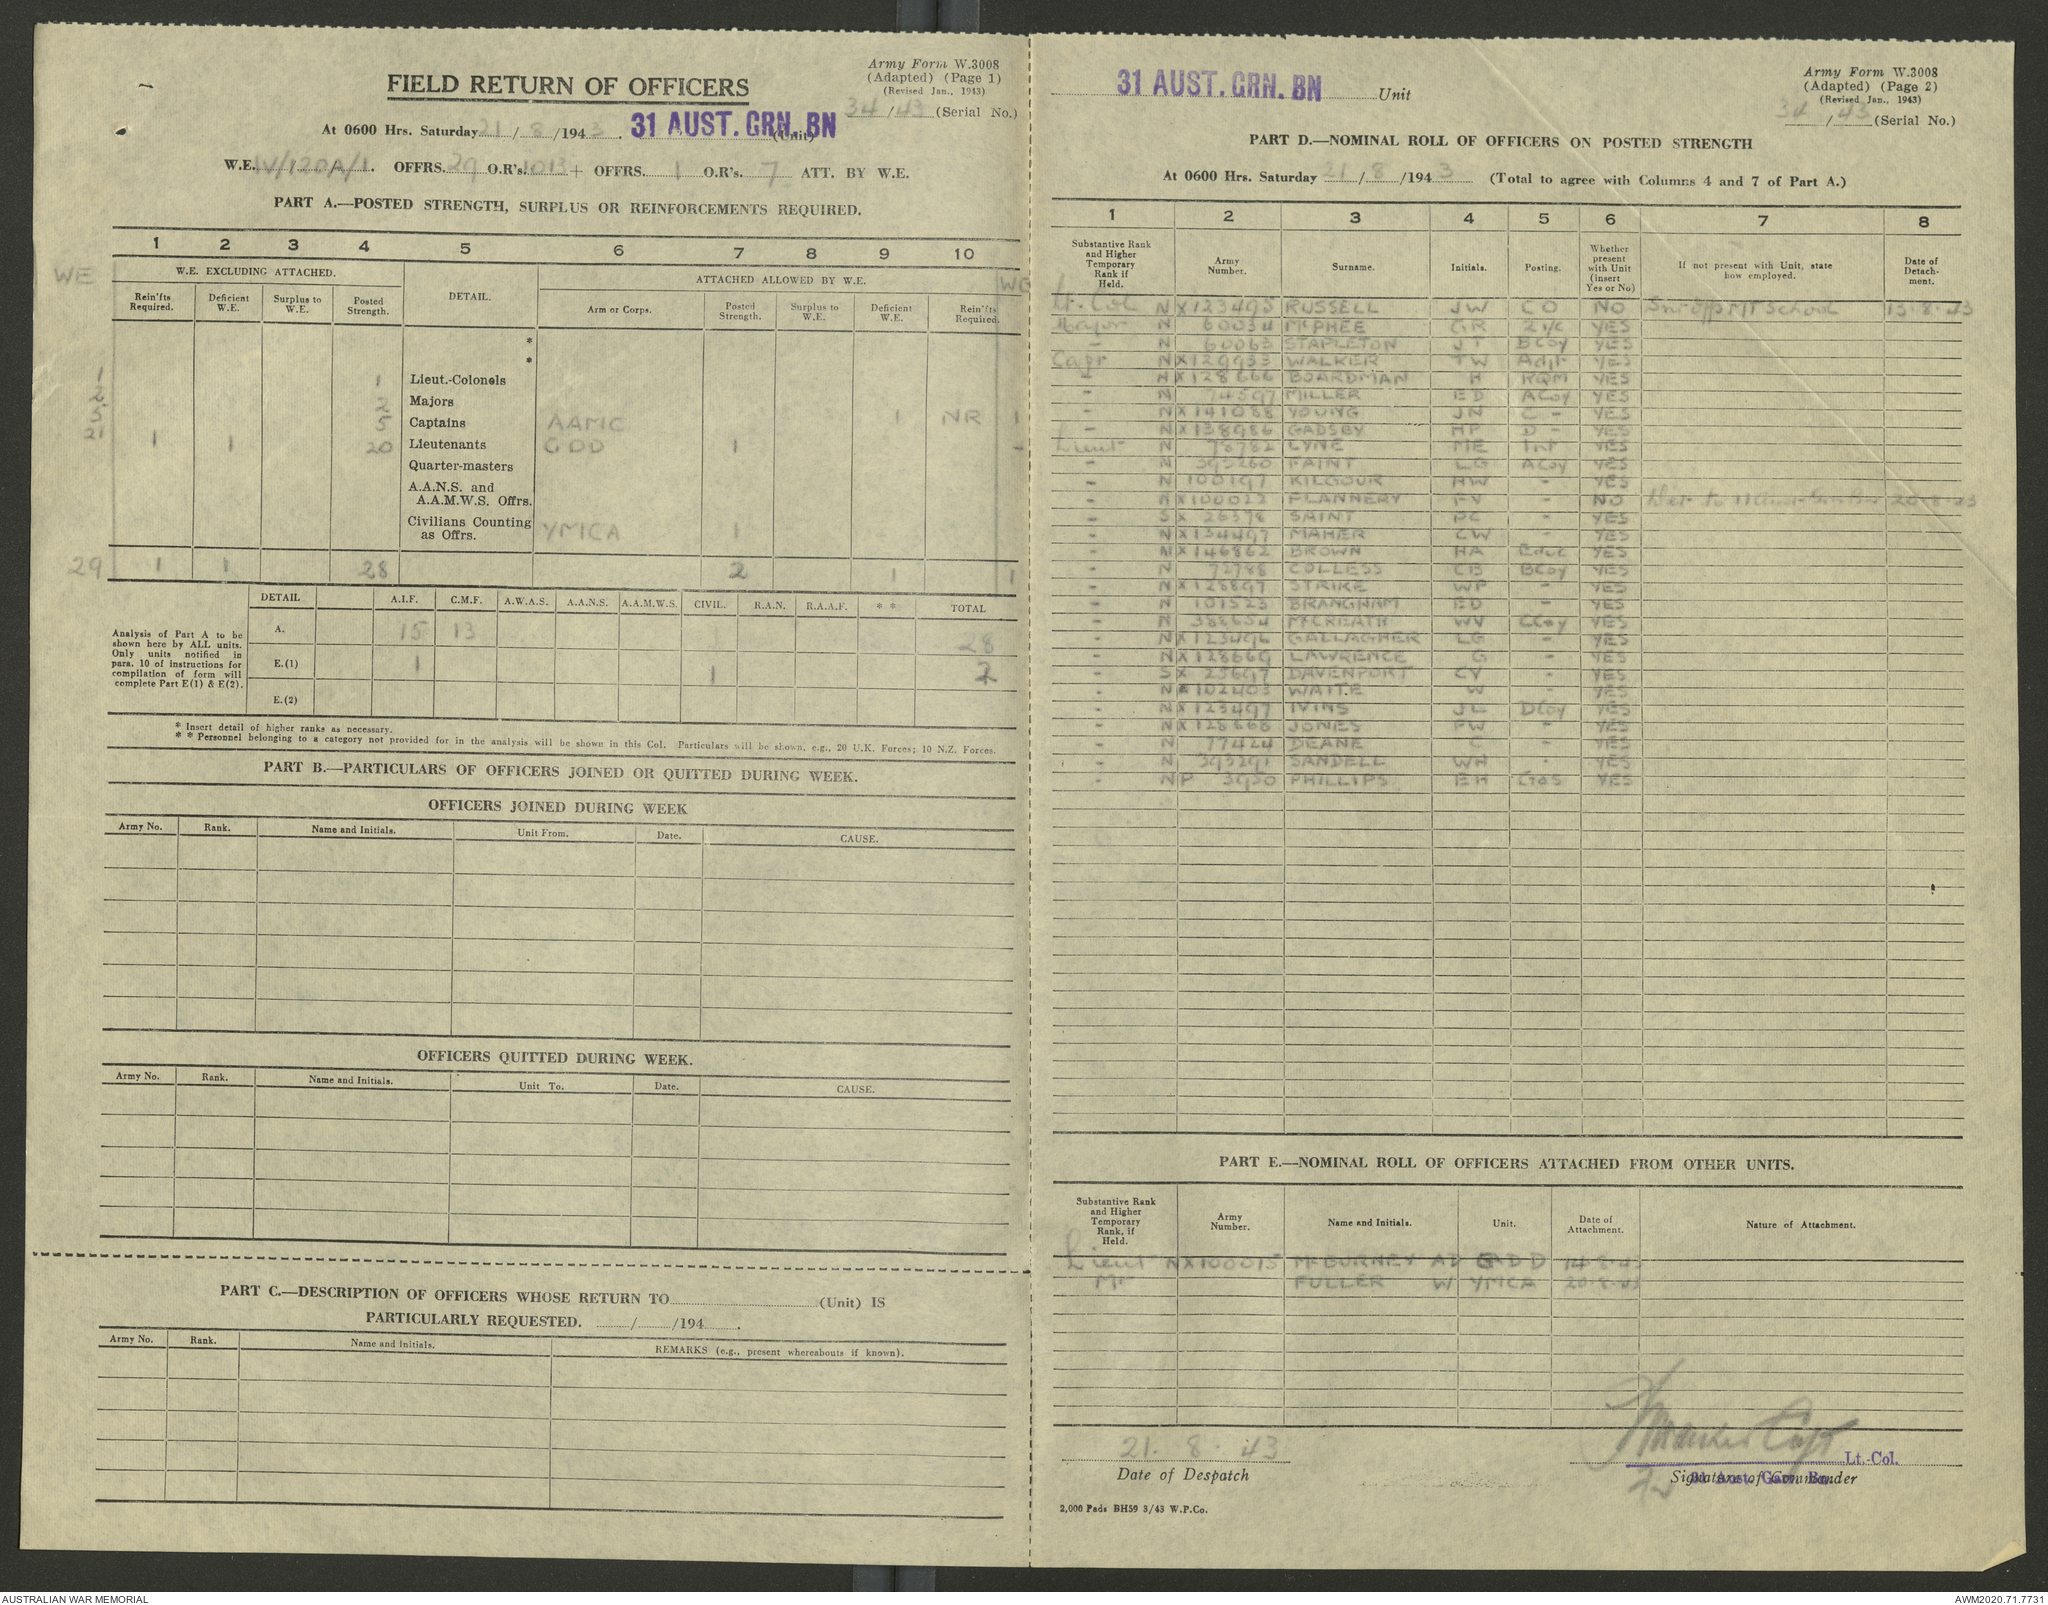 Army Form W.3008
(Adapted) (Page 1)
(Revised Jan., 1943)
FIELD RETURN OF OFFICERS
34/43 (Serial No.)
At 0600 Hrs. Saturday 21/8/1943. 31 AUST. GRN. BN (Unit)
W.E. IV/120A/1. OFFRS. 29 O.R's. 1013 + OFFRS. 1 O.R's. 7 ATT. BY W.E.
PART A.—POSTED STRENGTH, SURPLUS OR REINFORCEMENTS REQUIRED.
1 2 3 4 5 6 7 8 9 10
WE W.E. EXCLUDING ATTACHED. DETAIL. ATTACHED ALLOWED BY W.E.
Rein'fts Required. Deficient W.E. Surplus to W.E. Posted Strength. Arm or Corps. Posted Strength. Surplus to W.E. Deficient W.E. Rein'fts Required.
*
*
1 1 Lieut.-Colonels
2 2 Majors
5 5 Captains AAMC 1 NR 1
21 1 1 20 Lieutenants GDD 1 -
Quarter-masters
A.A.N.S. and
A.A.M.W.S. Offrs.
Civilians Counting
as Offrs. YMCA 1
29 1 1 28 2 1 1
DETAIL A.I.F. C.M.F. A.W.A.S. A.A.N.S. A.A.M.W.S. CIVIL. R.A.N. R.A.A.F. * * TOTAL
Analysis of Part A to be
shown here by ALL units.
Only units notified in
para. 10 of instructions for
compilation of form will
complete Part E(1) & E(2).
A. 15 13 28
E.(1) 1 1 2
E.(2)
* Insert detail of higher ranks as necessary.
* * Personnel belonging to a category not provided for in the analysis will be shown in this Col. Particulars will be shown, e.g., 20 U.K. Forces; 10 N.Z. Forces.
PART B.—PARTICULARS OF OFFICERS JOINED OR QUITTED DURING WEEK.
OFFICERS JOINED DURING WEEK
Army No. Rank. Name and Initials. Unit From. Date. CAUSE.
OFFICERS QUITTED DURING WEEK.
Army No. Rank. Name and Initials. Unit To. Date. CAUSE.
PART C.—DESCRIPTION OF OFFICERS WHOSE RETURN TO (Unit) IS
PARTICULARLY REQUESTED. / /194 .
Army No. Rank. Name and Initials. REMARKS (e.g., present whereabouts if known).
31 AUST. GRN. BN Unit
Army Form W.3008
(Adapted) (Page 2)
(Revised Jan., 1943)
34/43 (Serial No.)
PART D.—NOMINAL ROLL OF OFFICERS ON POSTED STRENGTH
At 0600 Hrs. Saturday 21/8/1943 (Total to agree with Columns 4 and 7 of Part A.)
1 2 3 4 5 6 7 8
Substantive Rank and Higher Temporary Rank if Held. Army Number. Surname. Initials. Posting. Whether present with Unit (insert Yes or No) If not present with Unit, state how employed. Date of Detachment.
Lt. Col NX123495 RUSSELL JW CO NO MT School 15.8.43
Major N 60034 McPHEE GR 2i/c YES
- N 60063 STAPLETON JT BCoy YES
Capt NX129933 WALKER TW Adjt YES
- NX128666 BOARDMAN H RQM YES
- N 74597 MILLER ED ACoy YES
- NX141088 YOUNG JN C - YES
- NX138986 GADSBY HP D - YES
Lieut N 78782 LYNE ME Int YES
- N 393260 FAINT LG ACoy YES
- N 100197 KILGOUR HW - YES
- NX100022 FLANNERY FV - NO 20.8.43
- SX 26378 SAINT PC - YES
- NX134497 MAHER CW - YES
- NX146862 BROWN HA Educ YES
- N 72788 COLLESS CB BCoy YES
- NX128897 STRIKE WP - YES
- N 101523 BRANGHAM ED - YES
- N 388654 McCREATH WV CCoy YES
- NX123496 GALLAGHER LG - YES
- NX128669 LAWRENCE G - YES
- SX 25697 DAVENPORT CV - YES
- NX102403 WAITE W - YES
- NX123497 IVINS JL DCoy YES
- NX128668 JONES FW - YES
- N 77424 DEANE C - YES
- N 393291 SANDELL WH - YES
- NP 3950 PHILLIPS EH Gas YES
PART E.—NOMINAL ROLL OF OFFICERS ATTACHED FROM OTHER UNITS.
Substantive Rank and Higher Temporary Rank, if Held. Army Number. Name and Initials. Unit. Date of Attachment. Nature of Attachment.
Lieut NX100015 McBURNEY AD GDD 14.8.43
Mr FULLER W YMCA 20.8.43
21. 8. 43
Date of Despatch
Capt
Lt.-Col.
Signature of Commander
31 Aust. Garr. Bn.
2,000 Pads BH59 3/43 W.P.Co.
AUSTRALIAN WAR MEMORIAL
AWM2020.71.7731